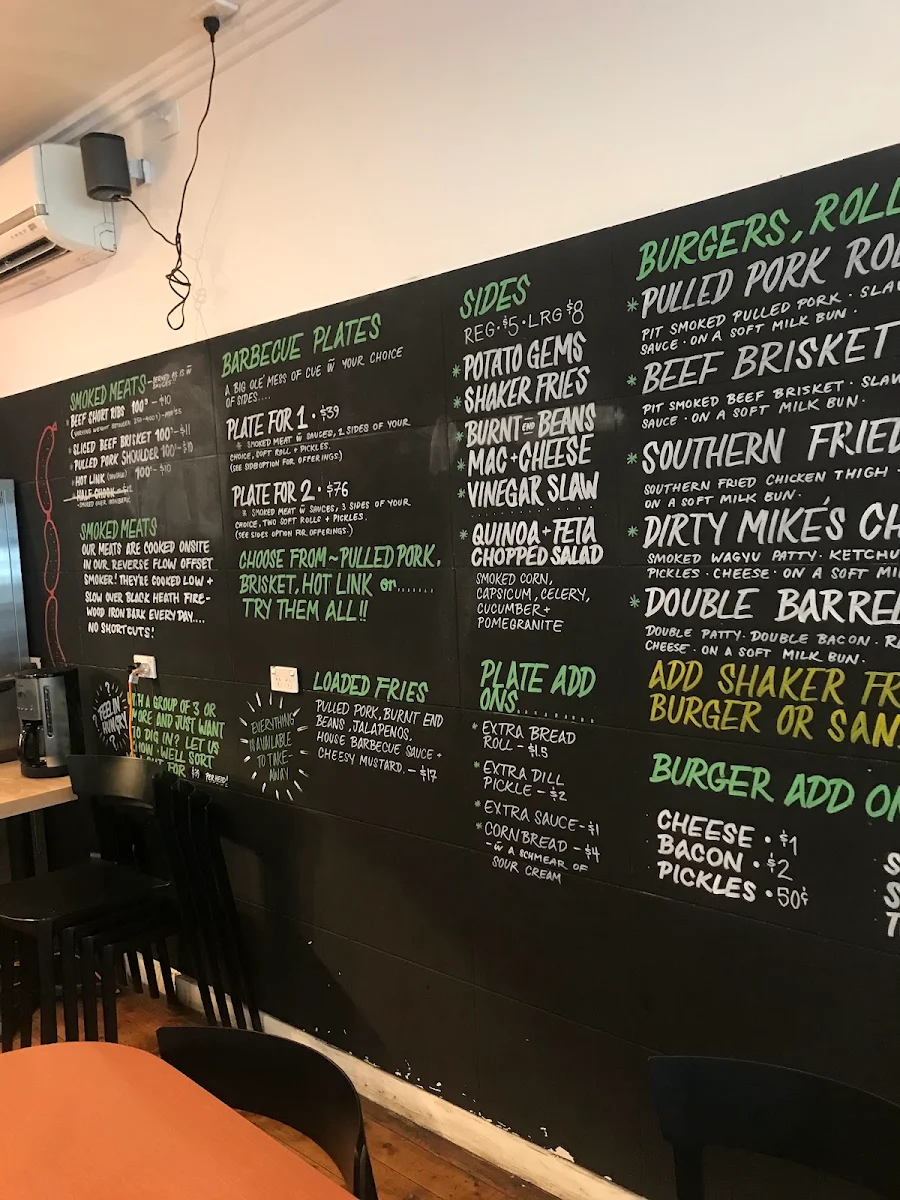 SMOKED MEATS
BEEF SHORT RIBS 100g - $10
SLICED BEEF BRISKET 100g - $11
PULLED PORK SHOULDER 100g - $10
HOT LINK 100g - $10
HALF CHOOK
SMOKED MEATS
OUR MEATS ARE COOKED ONSITE
IN OUR REVERSE FLOW OFFSET
SMOKER! THEY'RE COOKED LOW +
SLOW OVER BLACK HEATH FIRE-
WOOD IRON BARK EVERY DAY....
NO SHORTCUTS!
FEELIN'
HUNGRY
A GROUP OF 3 OR
AND JUST WANT
DIG IN? LET US
WELL SORT
FOR PER HEAD!
BARBECUE PLATES
A BIG OLE' MESS OF CUE W YOUR CHOICE
OF SIDES....
PLATE FOR 1 • $39
SMOKED MEAT W SAUCES, 2 SIDES OF YOUR
CHOICE, SOFT ROLL + PICKLES.
(SEE SIDE OPTION FOR OFFERINGS)
PLATE FOR 2 • $76
SMOKED MEAT W SAUCES, 3 SIDES OF YOUR
CHOICE, TWO SOFT ROLLS + PICKLES.
(SEE SIDES OPTION FOR OFFERINGS.)
CHOOSE FROM ~ PULLED PORK,
BRISKET, HOT LINK or.......
TRY THEM ALL!!
EVERYTHING
IS AVAILABLE
TO TAKE-
AWAY
LOADED FRIES
PULLED PORK, BURNT END
BEANS, JALAPENOS,
HOUSE BARBECUE SAUCE +
CHEESY MUSTARD. - $17
SIDES
REG • $5 • LRG $8
* POTATO GEMS
* SHAKER FRIES
* BURNT END BEANS
* MAC + CHEESE
* VINEGAR SLAW
* QUINOA + FETA
CHOPPED SALAD
SMOKED CORN,
CAPSICUM, CELERY,
CUCUMBER +
POMEGRANITE
PLATE ADD
ONS..........
* EXTRA BREAD
ROLL - $1.5
* EXTRA DILL
PICKLE - $2
* EXTRA SAUCE - $1
* CORNBREAD - $4
- W A SCHMEAR OF
SOUR CREAM
BURGERS, ROLL
* PULLED PORK RO
PIT SMOKED PULLED PORK • SLAW
SAUCE • ON A SOFT MILK BUN.
* BEEF BRISKET
PIT SMOKED BEEF BRISKET • SLAW
SAUCE • ON A SOFT MILK BUN.
* SOUTHERN FRIED
SOUTHERN FRIED CHICKEN THIGH
ON A SOFT MILK BUN.
* DIRTY MIKE'S CH
SMOKED WAGYU PATTY • KETCHU
PICKLES • CHEESE • ON A SOFT MI
* DOUBLE BARREL
DOUBLE PATTY • DOUBLE BACON • RA
CHEESE • ON A SOFT MILK BUN.
ADD SHAKER FR
BURGER OR SAN
BURGER ADD ON
CHEESE • $1
BACON • $2
PICKLES • 50¢